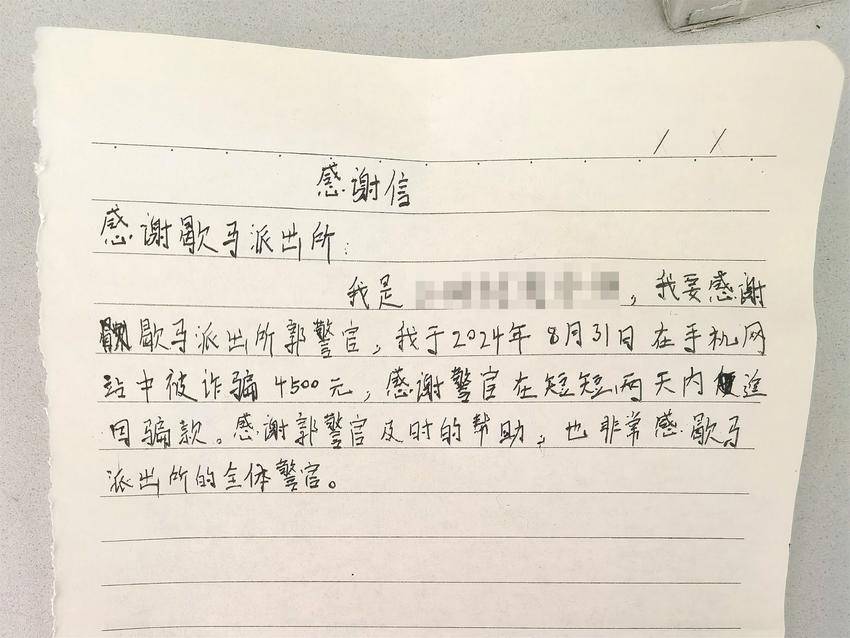 / /
感谢信
感谢歇马派出所:
我是 , 我要感谢
歇马派出所郭警官, 我于2024年8月31日在手机网
站中被诈骗4500元, 感谢警官在短短两天内追
回骗款。感谢郭警官及时的帮助, 也非常感歇马
派出所的全体警官。